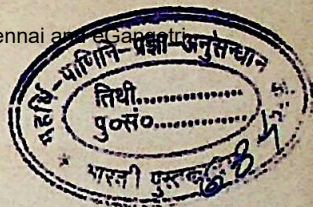 ennai and eGangotri
महर्षि-पाणिनि-प्रज्ञा-अनुसन्धान
तिथी..............
पु०सं०..............
* भारती पुस्तका